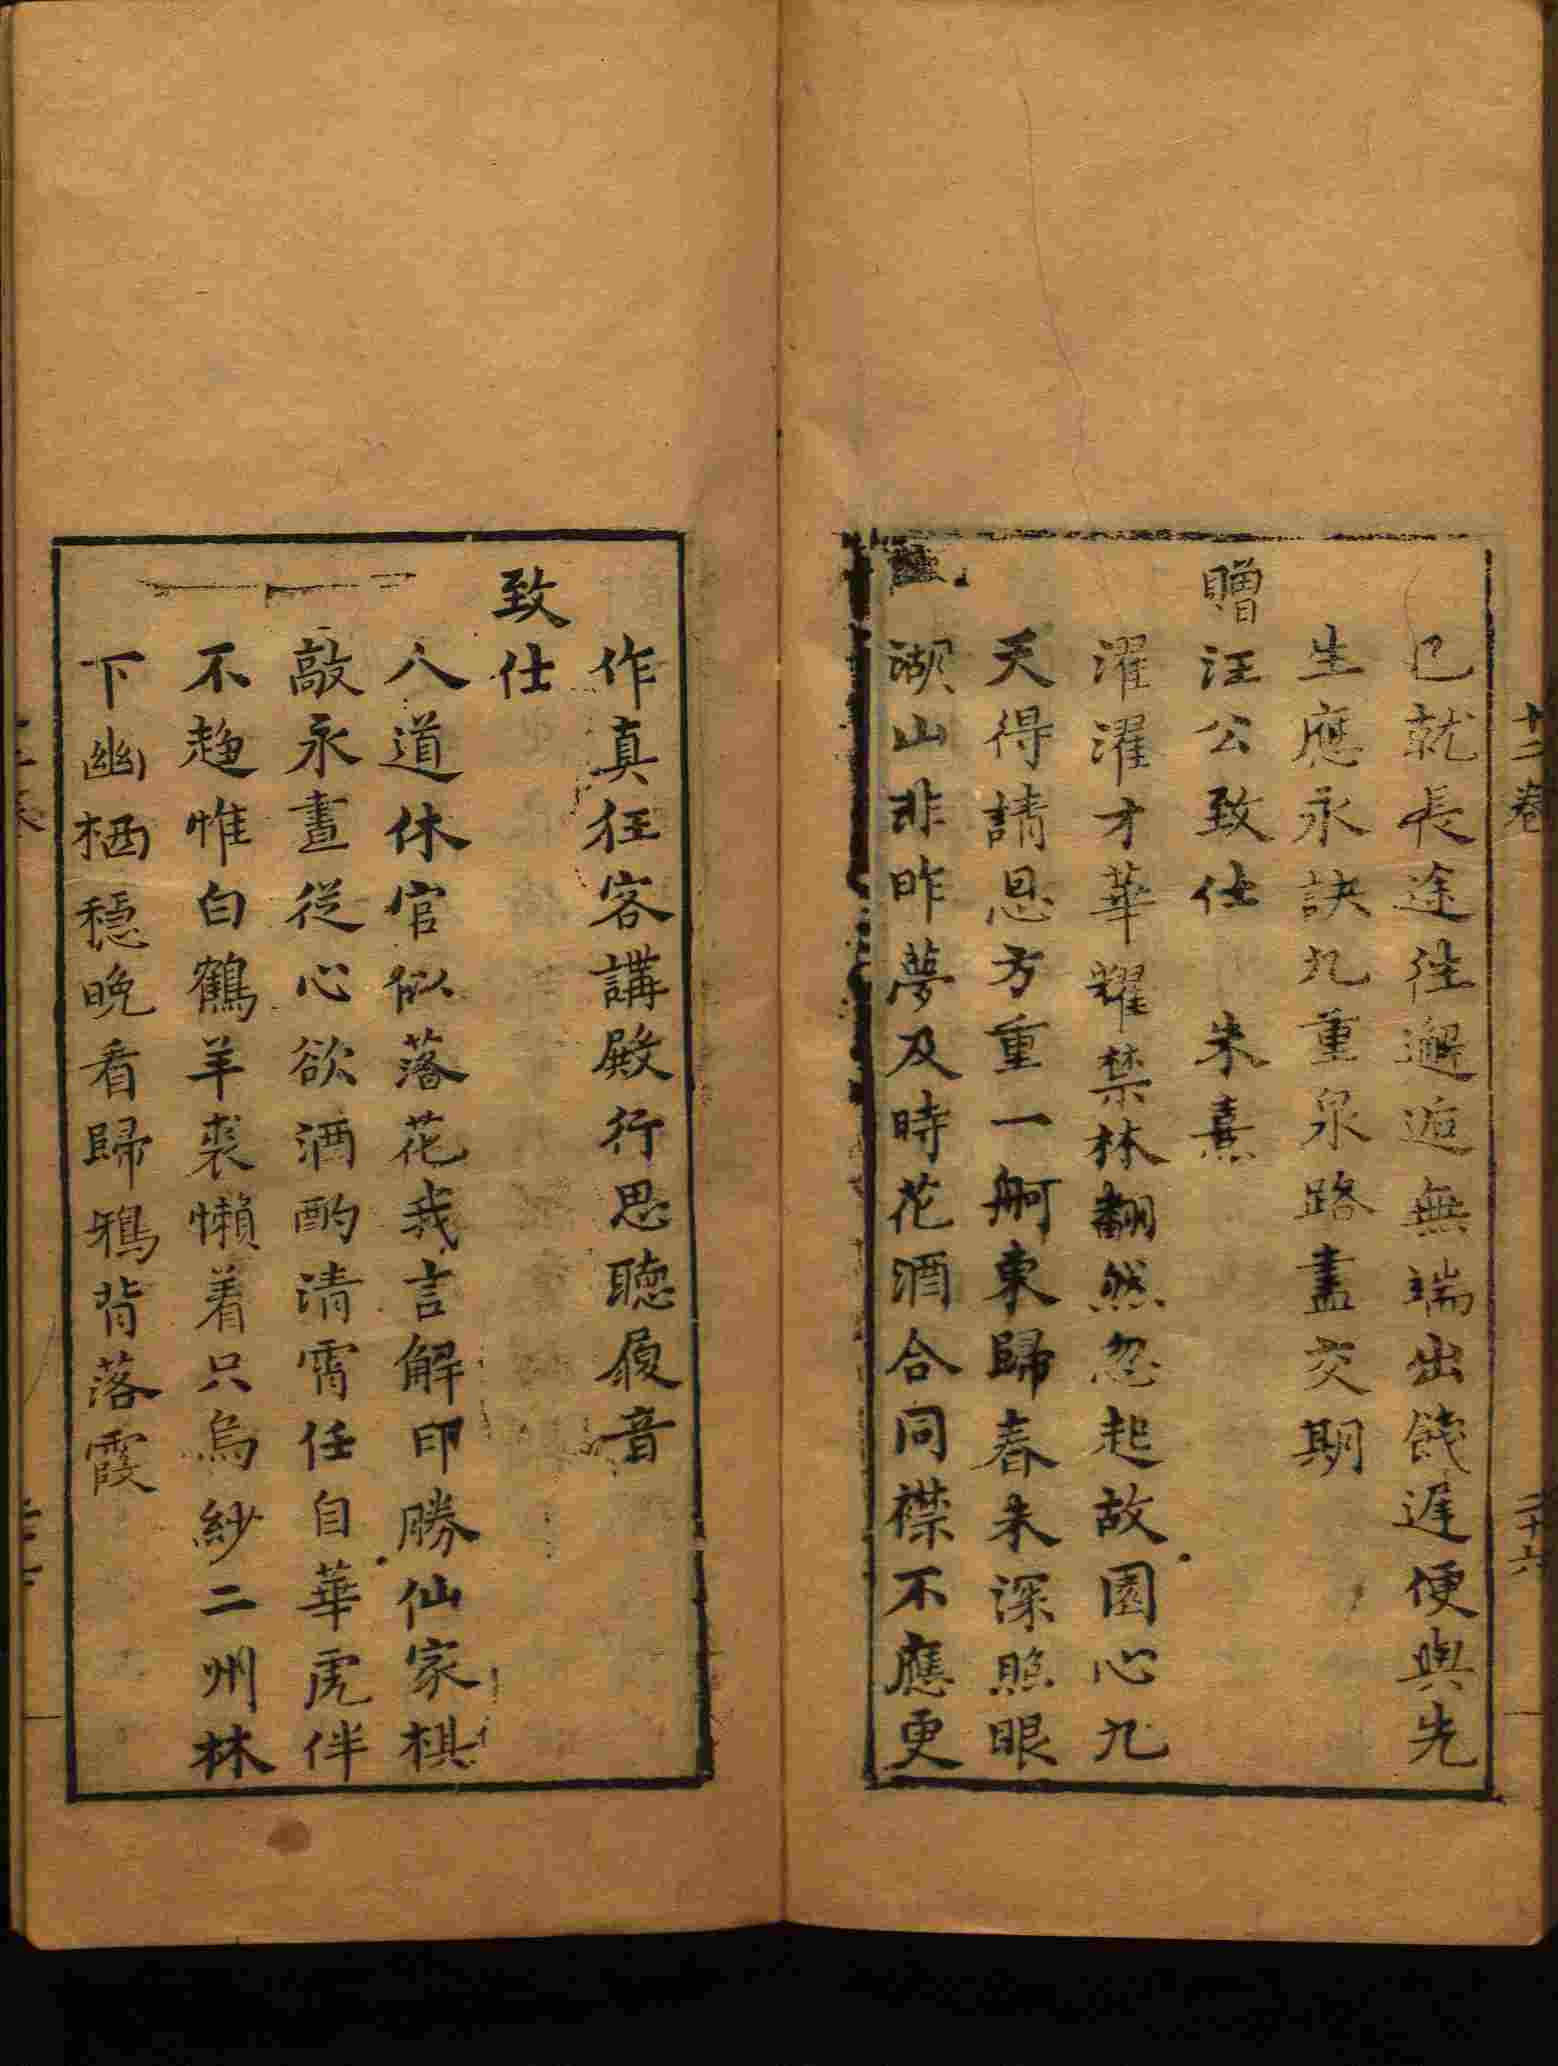 十二卷
二十六
已就長途往邂逅無端出餞遲便與先
生應永訣九重泉路盡交期
贈汪公致仕　朱熹
濯濯才華耀禁林翻然忽起故園心九
天得請恩方重一舸東歸春未深照眼
湖山非昨夢及時花酒合同襟不應更
作真狂客講殿行思聽履音
致仕
八道休官似落花我言解印勝仙家棋
敲永晝從心欲酒酌清宵任自華虎伴
不趋惟白鶴羊裘懶着只烏紗二州林
下幽栖穩晚看歸鴉背落霞